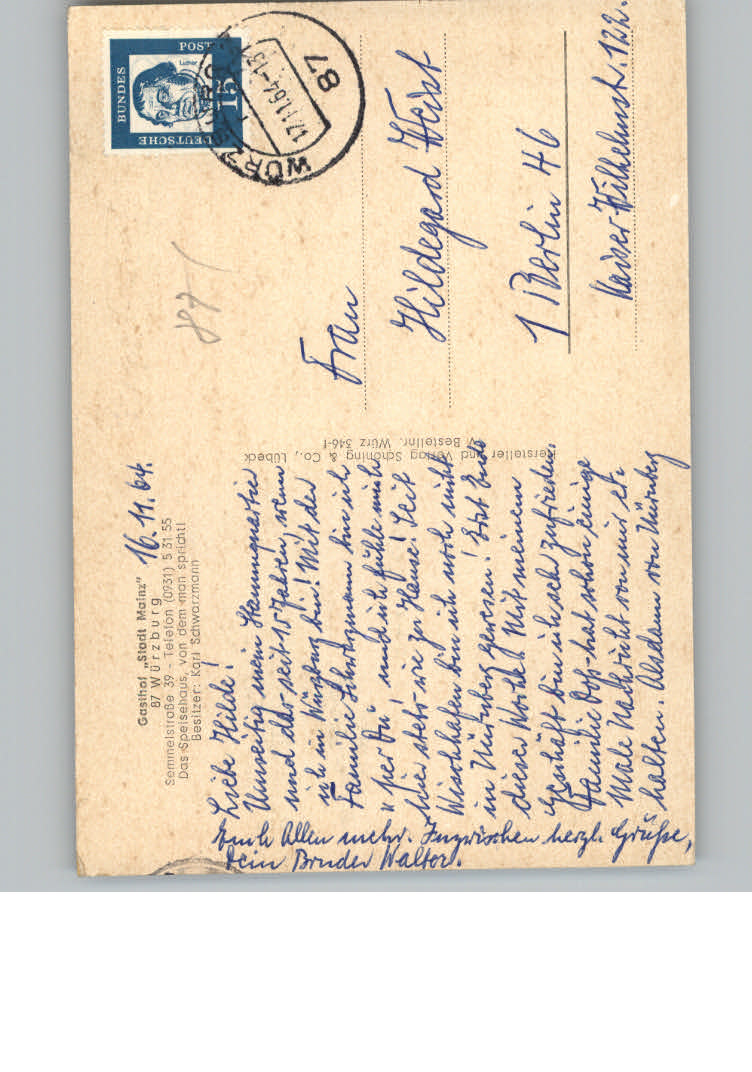 Gasthof „Stadt Mainz"
87 Würzburg
Semmelstraße 39 - Telefon (0931) 5 31 55
Das Speisehaus, von dem man spricht!
Besitzer: Karl Schwarzmann
16.11.64.
Liebe Hilde!
Umseitig mein Stammquartier
und das seit 15 Jahren, wenn
ich in Würzburg bin! Mit der
Familie Schwarzmann bin ich
"per Du" und ich fühle mich
hier stets wie zu Hause! Seit
Wieshofen bin ich noch nicht
in Nürnberg gewesen! Erst Ende
dieser Woche! Mit meinem
Geschäft bin ich sehr zufrieden.
Familie hat schon einige
Male Nachricht von mir er-
halten. Alsdann von Nürnberg
Euch Allen mehr. Inzwischen herzl. Grüße,
Dein Bruder Walter.
Hersteller und Verlag Schöning & Co., Lübeck
Bestellnr. Würz 346-f
DEUTSCHE
BUNDES
POST
Luther
15
WÜRZBURG
17.11.64-13
87
87
Frau
Hildegard Weist
1 Berlin 46
Kaiser-Wilhelmstr. 122.